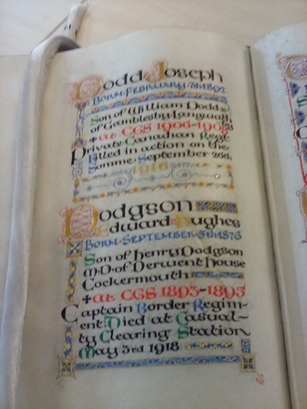 Dodd Joseph
Born February
Son of William Dodd
of Gamblesby Langwath
+at CGS 1906-
Private Canadian Regt
Killed in action on the
Somme September 26th
1916
Dodgson
Edward Hughes
Born September
Son of Henry Dodgson
M·D·of Derwent House
Cockermouth
+at CGS 1893-1895
Captain Border Regim-
ent Died at Casual-
ty Clearing Station
May 3rd 1918